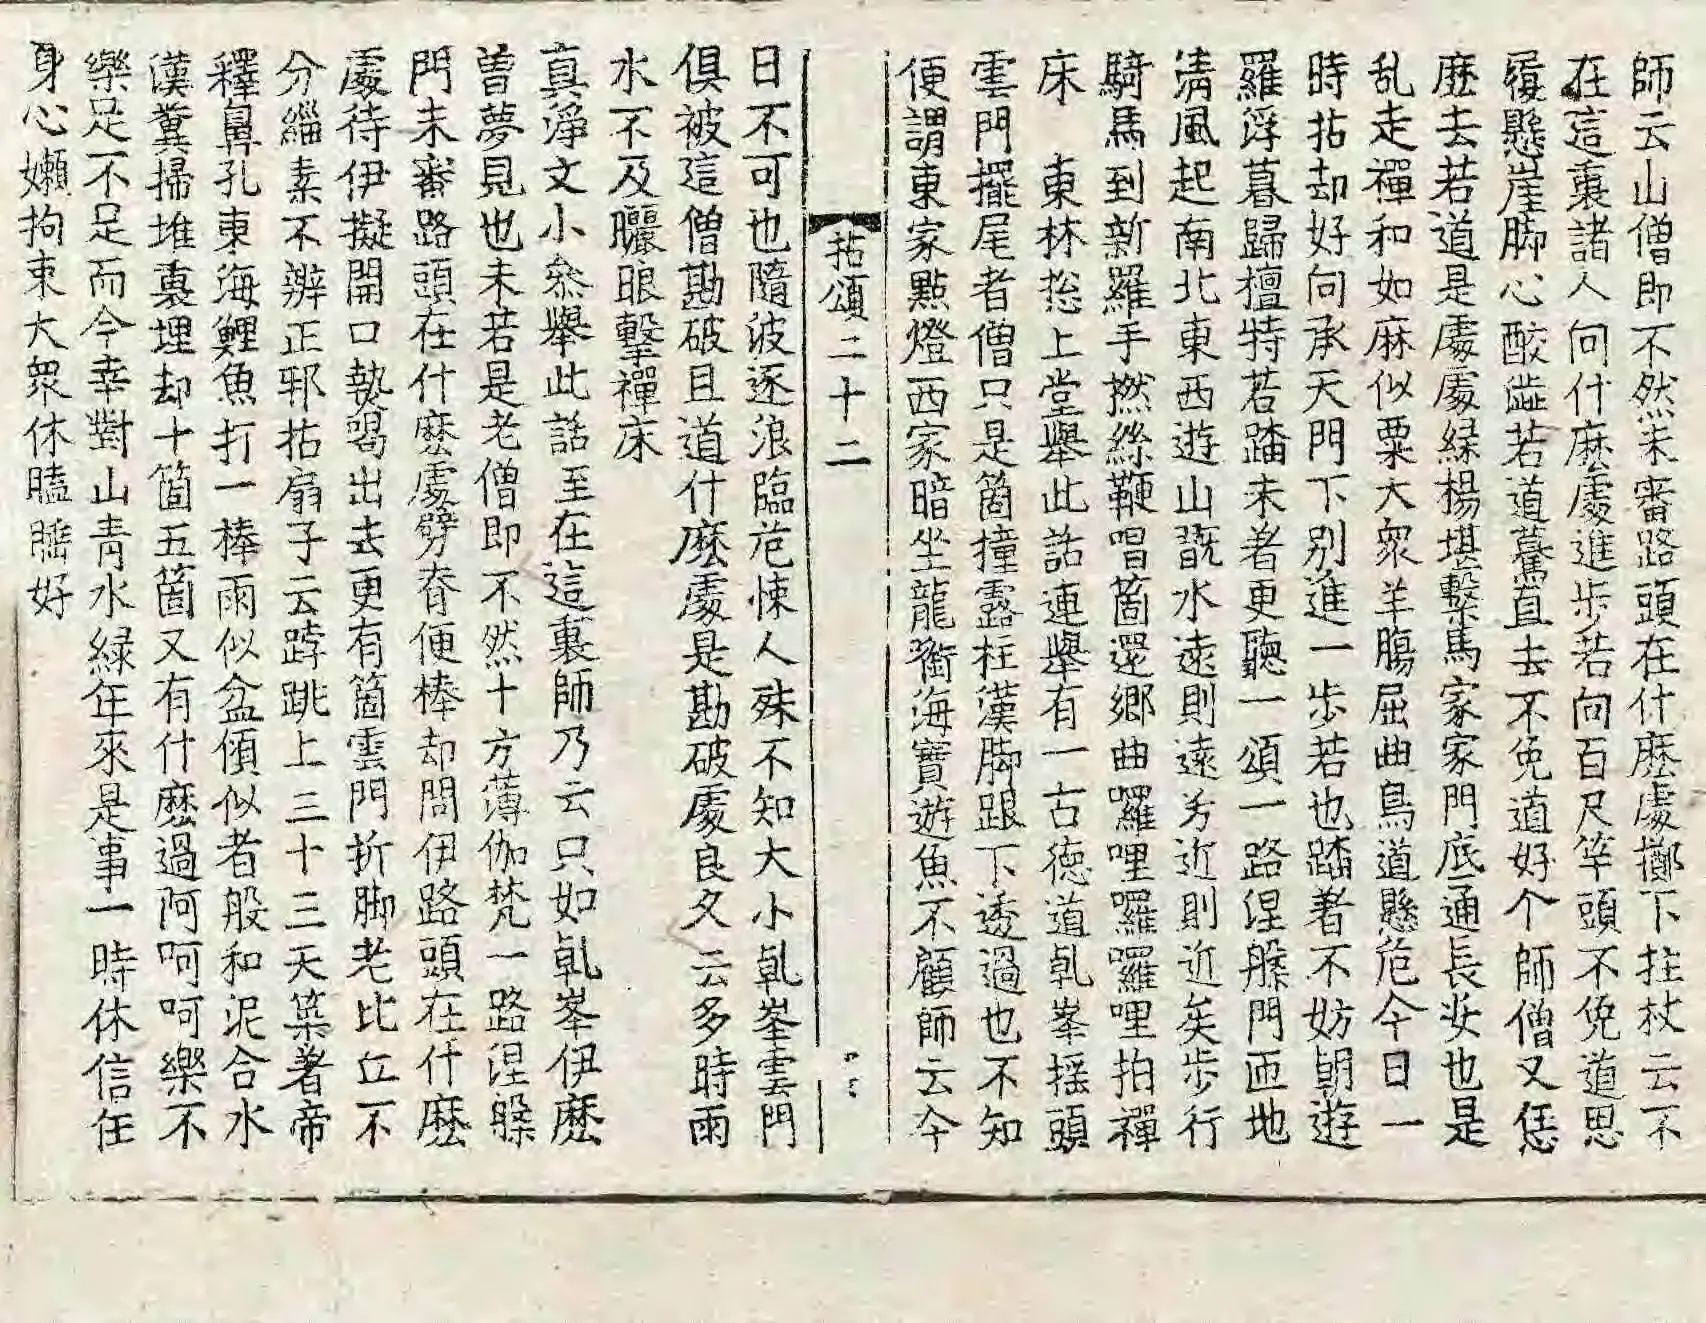 師云山僧即不然未審路頭在什麽處擲下拄杖云不
在這裏諸人向什麽處進步若向百尺竿頭不免道思
復懸崖脚心酸澁若道驀直去不免道好个師僧又恁
麽去若道是處處緑楊堪繫馬家家門底通長安也是
乱走禪和如麻似粟大衆羊膓屈曲鳥道懸危今日一
時拈却好向承天門下別進一步若也踏著不妨朝遊
羅浮暮歸檀特若踏未著更聽一頌一路涅槃門匝地
清風起南北東西遊山翫水遠則遠兮近則近矣步行
騎馬到新羅手撚絲鞭唱箇還鄉曲囉哩囉囉哩拍禪
床　東林揔上堂舉此話連舉有一古德道乹峯揺頭
雲門擺尾者僧只是箇撞露柱漢脚跟下透過也不知
便謂東家點燈西家暗坐龍銜海寶遊魚不顧師云今
拈頌二十二
日不可也隨波逐浪臨危悚人殊不知大小乹峯雲門
俱被這僧勘破且道什麽處是勘破處良久云多時雨
水不及曬眼擊禪床
真淨文小叅舉此話至在這裏師乃云只如乹峯伊麽
曾夢見也未若是老僧即不然十方薄伽梵一路涅槃
門未審路頭在什麽處劈脊便棒却問伊路頭在什麽
處待伊擬開口熱喝出去更有箇雲門折脚老比丘不
分緇素不辨正邪拈扇子云𨁝跳上三十三天築著帝
釋鼻孔東海鯉魚打一棒雨似盆傾似者般和泥合水
漢糞掃堆裏埋却十箇五箇又有什麽過阿呵呵樂不
樂足不足而今幸對山青水緑年來是事一時休信任
身心嬾拘束大衆休瞌睡好